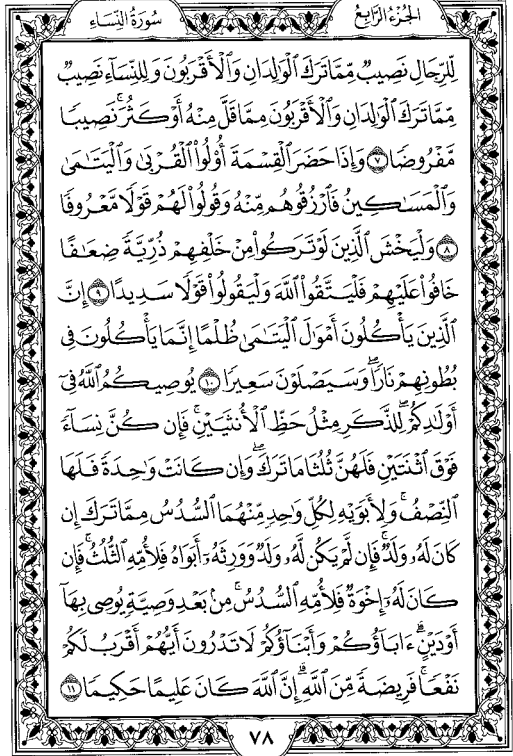 الجزء الرابع
سورة النساء
لِّلرِّجَالِ نَصِيبٌ مِّمَّا تَرَكَ ٱلْوَٰلِدَانِ وَٱلْأَقْرَبُونَ وَلِلنِّسَآءِ نَصِيبٌ
مِّمَّا تَرَكَ ٱلْوَٰلِدَانِ وَٱلْأَقْرَبُونَ مِمَّا قَلَّ مِنْهُ أَوْ كَثُرَ ۚ نَصِيبًا
مَّفْرُوضًا ٧ وَإِذَا حَضَرَ ٱلْقِسْمَةَ أُو۟لُوا۟ ٱلْقُرْبَىٰ وَٱلْيَتَٰمَىٰ
وَٱلْمَسَٰكِينُ فَٱرْزُقُوهُم مِّنْهُ وَقُولُوا۟ لَهُمْ قَوْلًا مَّعْرُوفًا
٨ وَلْيَخْشَ ٱلَّذِينَ لَوْ تَرَكُوا۟ مِنْ خَلْفِهِمْ ذُرِّيَّةً ضِعَٰفًا
خَافُوا۟ عَلَيْهِمْ فَلْيَتَّقُوا۟ ٱللَّهَ وَلْيَقُولُوا۟ قَوْلًا سَدِيدًا ٩ إِنَّ
ٱلَّذِينَ يَأْكُلُونَ أَمْوَٰلَ ٱلْيَتَٰمَىٰ ظُلْمًا إِنَّمَا يَأْكُلُونَ فِى
بُطُونِهِمْ نَارًا ۖ وَسَيَصْلَوْنَ سَعِيرًا ١٠ يُوصِيكُمُ ٱللَّهُ فِىٓ
أَوْلَٰدِكُمْ ۖ لِلذَّكَرِ مِثْلُ حَظِّ ٱلْأُنثَيَيْنِ ۚ فَإِن كُنَّ نِسَآءً
فَوْقَ ٱثْنَتَيْنِ فَلَهُنَّ ثُلُثَا مَا تَرَكَ ۖ وَإِن كَانَتْ وَٰحِدَةً فَلَهَا
ٱلنِّصْفُ ۚ وَلِأَبَوَيْهِ لِكُلِّ وَٰحِدٍ مِّنْهُمَا ٱلسُّدُسُ مِمَّا تَرَكَ إِن
كَانَ لَهُۥ وَلَدٌ ۚ فَإِن لَّمْ يَكُن لَّهُۥ وَلَدٌ وَوَرِثَهُۥٓ أَبَوَاهُ فَلِأُمِّهِ ٱلثُّلُثُ ۚ فَإِن
كَانَ لَهُۥٓ إِخْوَةٌ فَلِأُمِّهِ ٱلسُّدُسُ ۚ مِنۢ بَعْدِ وَصِيَّةٍ يُوصِى بِهَآ
أَوْ دَيْنٍ ۗ ءَابَآؤُكُمْ وَأَبْنَآؤُكُمْ لَا تَدْرُونَ أَيُّهُمْ أَقْرَبُ لَكُمْ
نَفْعًا ۚ فَرِيضَةً مِّنَ ٱللَّهِ ۗ إِنَّ ٱللَّهَ كَانَ عَلِيمًا حَكِيمًا ١١
٧٨